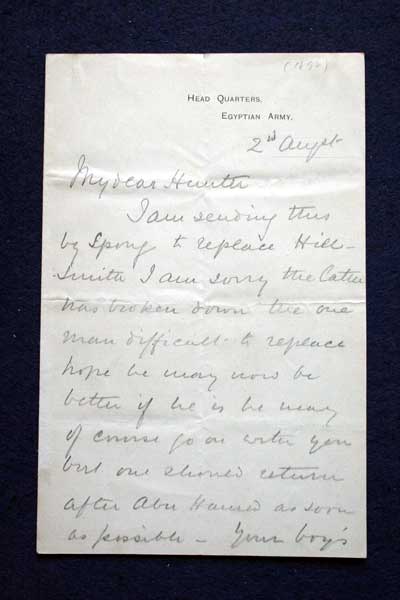 (1897)
HEAD QUARTERS,
EGYPTIAN ARMY.
2d Augst
My dear Hunter
I am sending this
by Spong to replace Hill-
Smith I am sorry the latter
has broken down the one
man difficult to replace
hope he may now be
better if he is he may
of course go on with you
but one should return
after Abu Hamed as soon
as possible – Your boy's